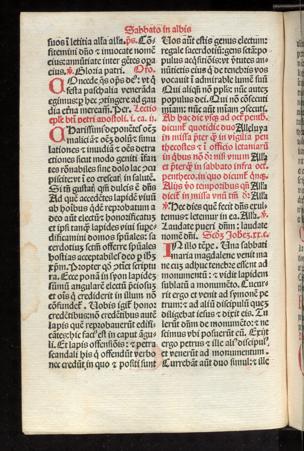 Sabbato in albis
suos ī letitia alla allā. p̄s. Cō⸗
fitemini dño ⁊ inuocate nomē
eius: annūtiate inter gētes opa
eius. ꝟ. Gloria patri. Oꝛo.
Oncede q̄s op̄s de⁹: vt q
festa paschalia venerāda
egimus: p hec ↄtingere ad gau
dia etna mereamᷣ. Per. Lectio
eplē bti petri apostoli. i. ca. ii.
Harissimi: deponētes oēꝫ
maliciā: ⁊ oēꝫ dolū: ⁊ simu
lationes ⁊ inuidiā ⁊ oēs detra
ctiones sicut modo geniti īfan
tes rōnabiles sine dolo lac ↄcu
piscite: vt ī eo crescat̄ in salutē.
Si tñ gustat̄ qm̄ dulcis ē dñs
Ad quē accedētes lapidē viuū
ab hominibus quidē reprobatum a
deo aūt electū ⁊ honorificatuꝫ
⁊ ipsi tanqᷓ lapides viui supe
dificamini domos spūales: sa
cerdotiū sctm̄ offerre spūales
hostias acceptabiles deo p ihm̄
xp̄m. Propter qd ↄtinet scriptu
ra. Ecce ponā in syon lapidē
sūmū angularē electū p̄ciosuꝫ
et oīs q crediderit in illum nō
cōfundetᷣ. Uobis igiᷣ honoꝛ
credētibus: nō credētibus autē
lapis quē reprobauerūt edifi⸗
cātes: hic fact⁹ est in caput āgu
li. Et lapis offensiōis: ⁊ petra
scandali his q offendūt verbo
nec credūt in quo ⁊ positi sunt
Uos aūt estis genus electum:
regale sacerdotiū: gens sctā: po
pulus acq̄sitiōis: vt ꝟtutes an
nūcietis eius q de tenebris vos
vocauit ī admirabile lumē suū
Qui aliqn̄ nō ppl̄s: nūc autez
populus dei. Qui nō cōsecuti
miam: nūc aūt miam ↄsecuti.
Ab hac die vsqꝫ ad oct̄ penth.
dicunt̄ quotidie duo Alleluya
in missa p̄ter qᷓ in vigilia pen
thecostes ⁊ ī officio letaniarū
in qbus nō dr̄ nisi vnum Alla
et p̄ter qᷓ in sabbato infra oct.
penthecos. in quo dicunt̄ qnqꝫ.
Alijs vo temporibus qn̄ Alla
dicit̄ in missa vnū tm̄ dr̄. Alla
ꝟ. Hec dies quā fecit dñs exul⸗
temus: ⁊ letemur in ea. Alla. ꝟ.
Laudate pueri dñm: laudate
nomē dñi. Scd̄ꝫ Johēꝫ. xx. c.
N illo tēpe. Una sabbati
maria magdalene venit ma
ne cū adhuc tenebre essent ad
monumentū: ⁊ vidit lapidem
sublatū a monumēto. Cucur⸗
rit ergo et venit ad symonē pe
trum: ⁊ ad aliū discipulū quez
diligebat iesus: ⁊ dixit eis. Tu
lerūt dñm de monumēto: ⁊ ne
scimus vbi posuerūt eū. Exijt
ergo petrus ⁊ ille ali⁹ discipul⁹
et venerūt ad monumentum.
Currebāt aūt duo simul: ⁊ ille